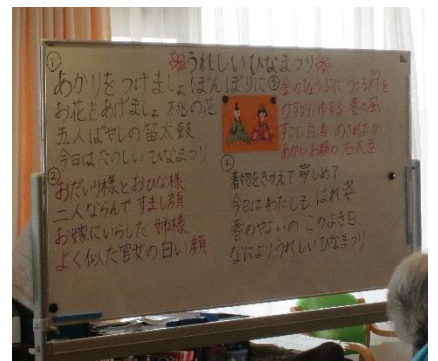 うれしいひなまつり
①
あかりをつけましょ ぼんぼりに
お花をあげましょ 桃の花
五人ばやしの笛太鼓
今日はたのしい ひなまつり
②
おだいり様とおひな様
二人ならんで すまし顔
お嫁にいらした 姉様に
よく似た官女の白い顔
③
金のびょうぶに うつる灯を
かすかにゆする 春の風
すこし白酒 めされたか
あかいお顔の 右大臣
④
着物をきかえて 帯しめて
今日はわたしも はれ姿
春のやよいの このよき日
なによりうれしい ひなまつり